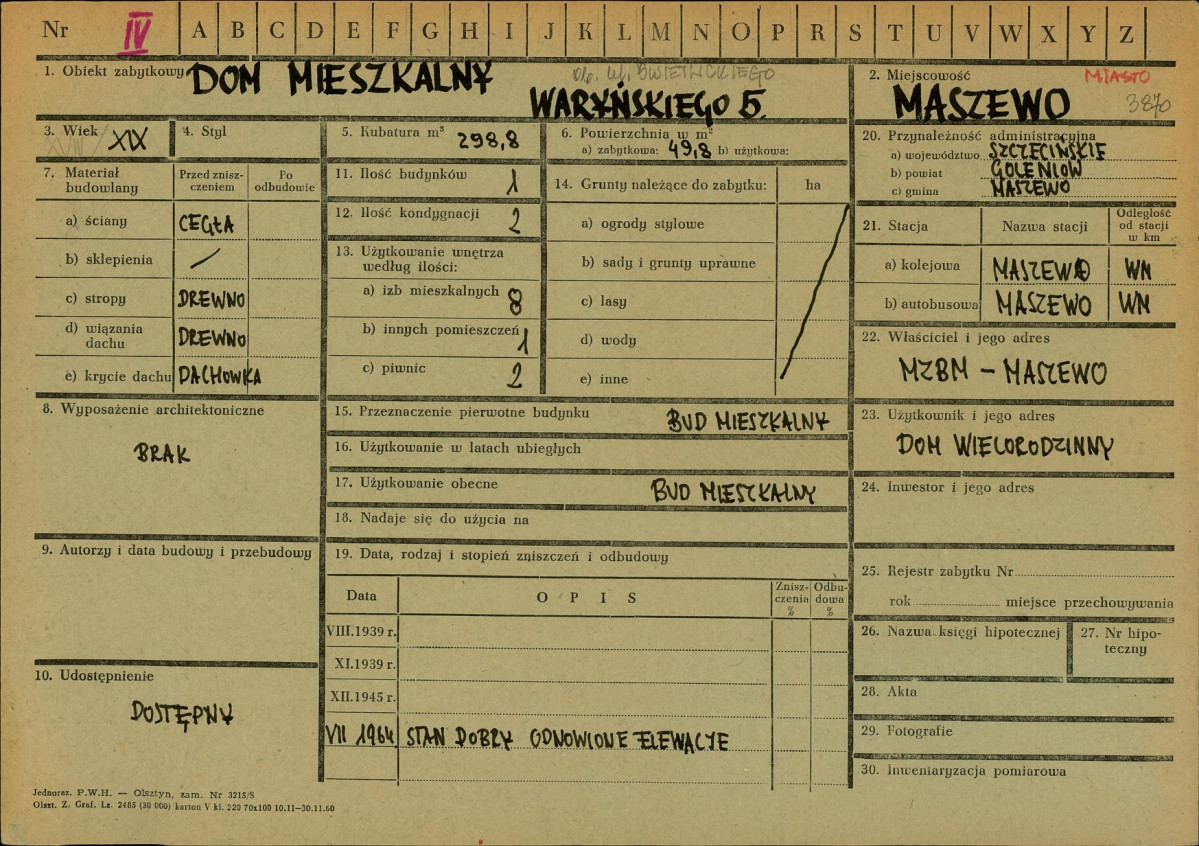 Nr IV A B C D E F G H I J K L M N O P R S T U V W X Y Z
1. Obiekt zabytkowy DOM MIESZKALNY
WARYŃSKIEGO 5.
2. Miejscowość MIASTO
MASZEWO 3870
3. Wiek XIX
4. Styl
5. Kubatura m³ 298,8
6. Powierzchnia w m²
a) zabytkowa: 49,8 b) użytkowa:
7. Materiał budowlany
Przed zniszczeniem
Po odbudowie
a) ściany CEGŁA
b) sklepienia /
c) stropy DREWNO
d) wiązania dachu DREWNO
e) krycie dachu DACHOWKA
8. Wyposażenie architektoniczne
BRAK
9. Autorzy i data budowy i przebudowy
10. Udostępnienie
DOSTĘPNY
11. Ilość budynków 1
12. Ilość kondygnacji 2
13. Użytkowanie wnętrza
według ilości:
a) izb mieszkalnych 8
b) innych pomieszczeń 1
c) piwnic 2
14. Grunty należące do zabytku: ha
a) ogrody stylowe
b) sady i grunty uprawne
c) lasy
d) wody
e) inne
15. Przeznaczenie pierwotne budynku BUD MIESZKALNY
16. Użytkowanie w latach ubiegłych
17. Użytkowanie obecne BUD MIESZKALNY
18. Nadaje się do użycia na
19. Data, rodzaj i stopień zniszczeń i odbudowy
Data
OPIS
Zniszczenia %
Odbudowa %
VIII.1939 r.
XI.1939 r.
XII.1945 r.
VII 1964 STAN DOBRY ODNOWIONE ELEWACJE
20. Przynależność administracyjna
a) województwo SZCZECIŃSKIE
b) powiat GOLENIÓW
c) gmina MASZEWO
21. Stacja
Nazwa stacji
Odległość od stacji w km
a) kolejowa MASZEWO WM
b) autobusowa MASZEWO WM
22. Właściciel i jego adres
MZBM – MASZEWO
23. Użytkownik i jego adres
DOM WIELORODZINNY
24. Inwestor i jego adres
25. Rejestr zabytku Nr
rok miejsce przechowywania
26. Nazwa księgi hipotecznej
27. Nr hipoteczny
28. Akta
29. Fotografie
30. Inweniaryzacja pomiarowa
Jednoraz. P.W.H. — Olsztyn, zam. Nr 3215/S
Olszt. Z. Graf. Lz. 2485 (30 000) karton V kl. 220 70x100 10.11—30.11.60